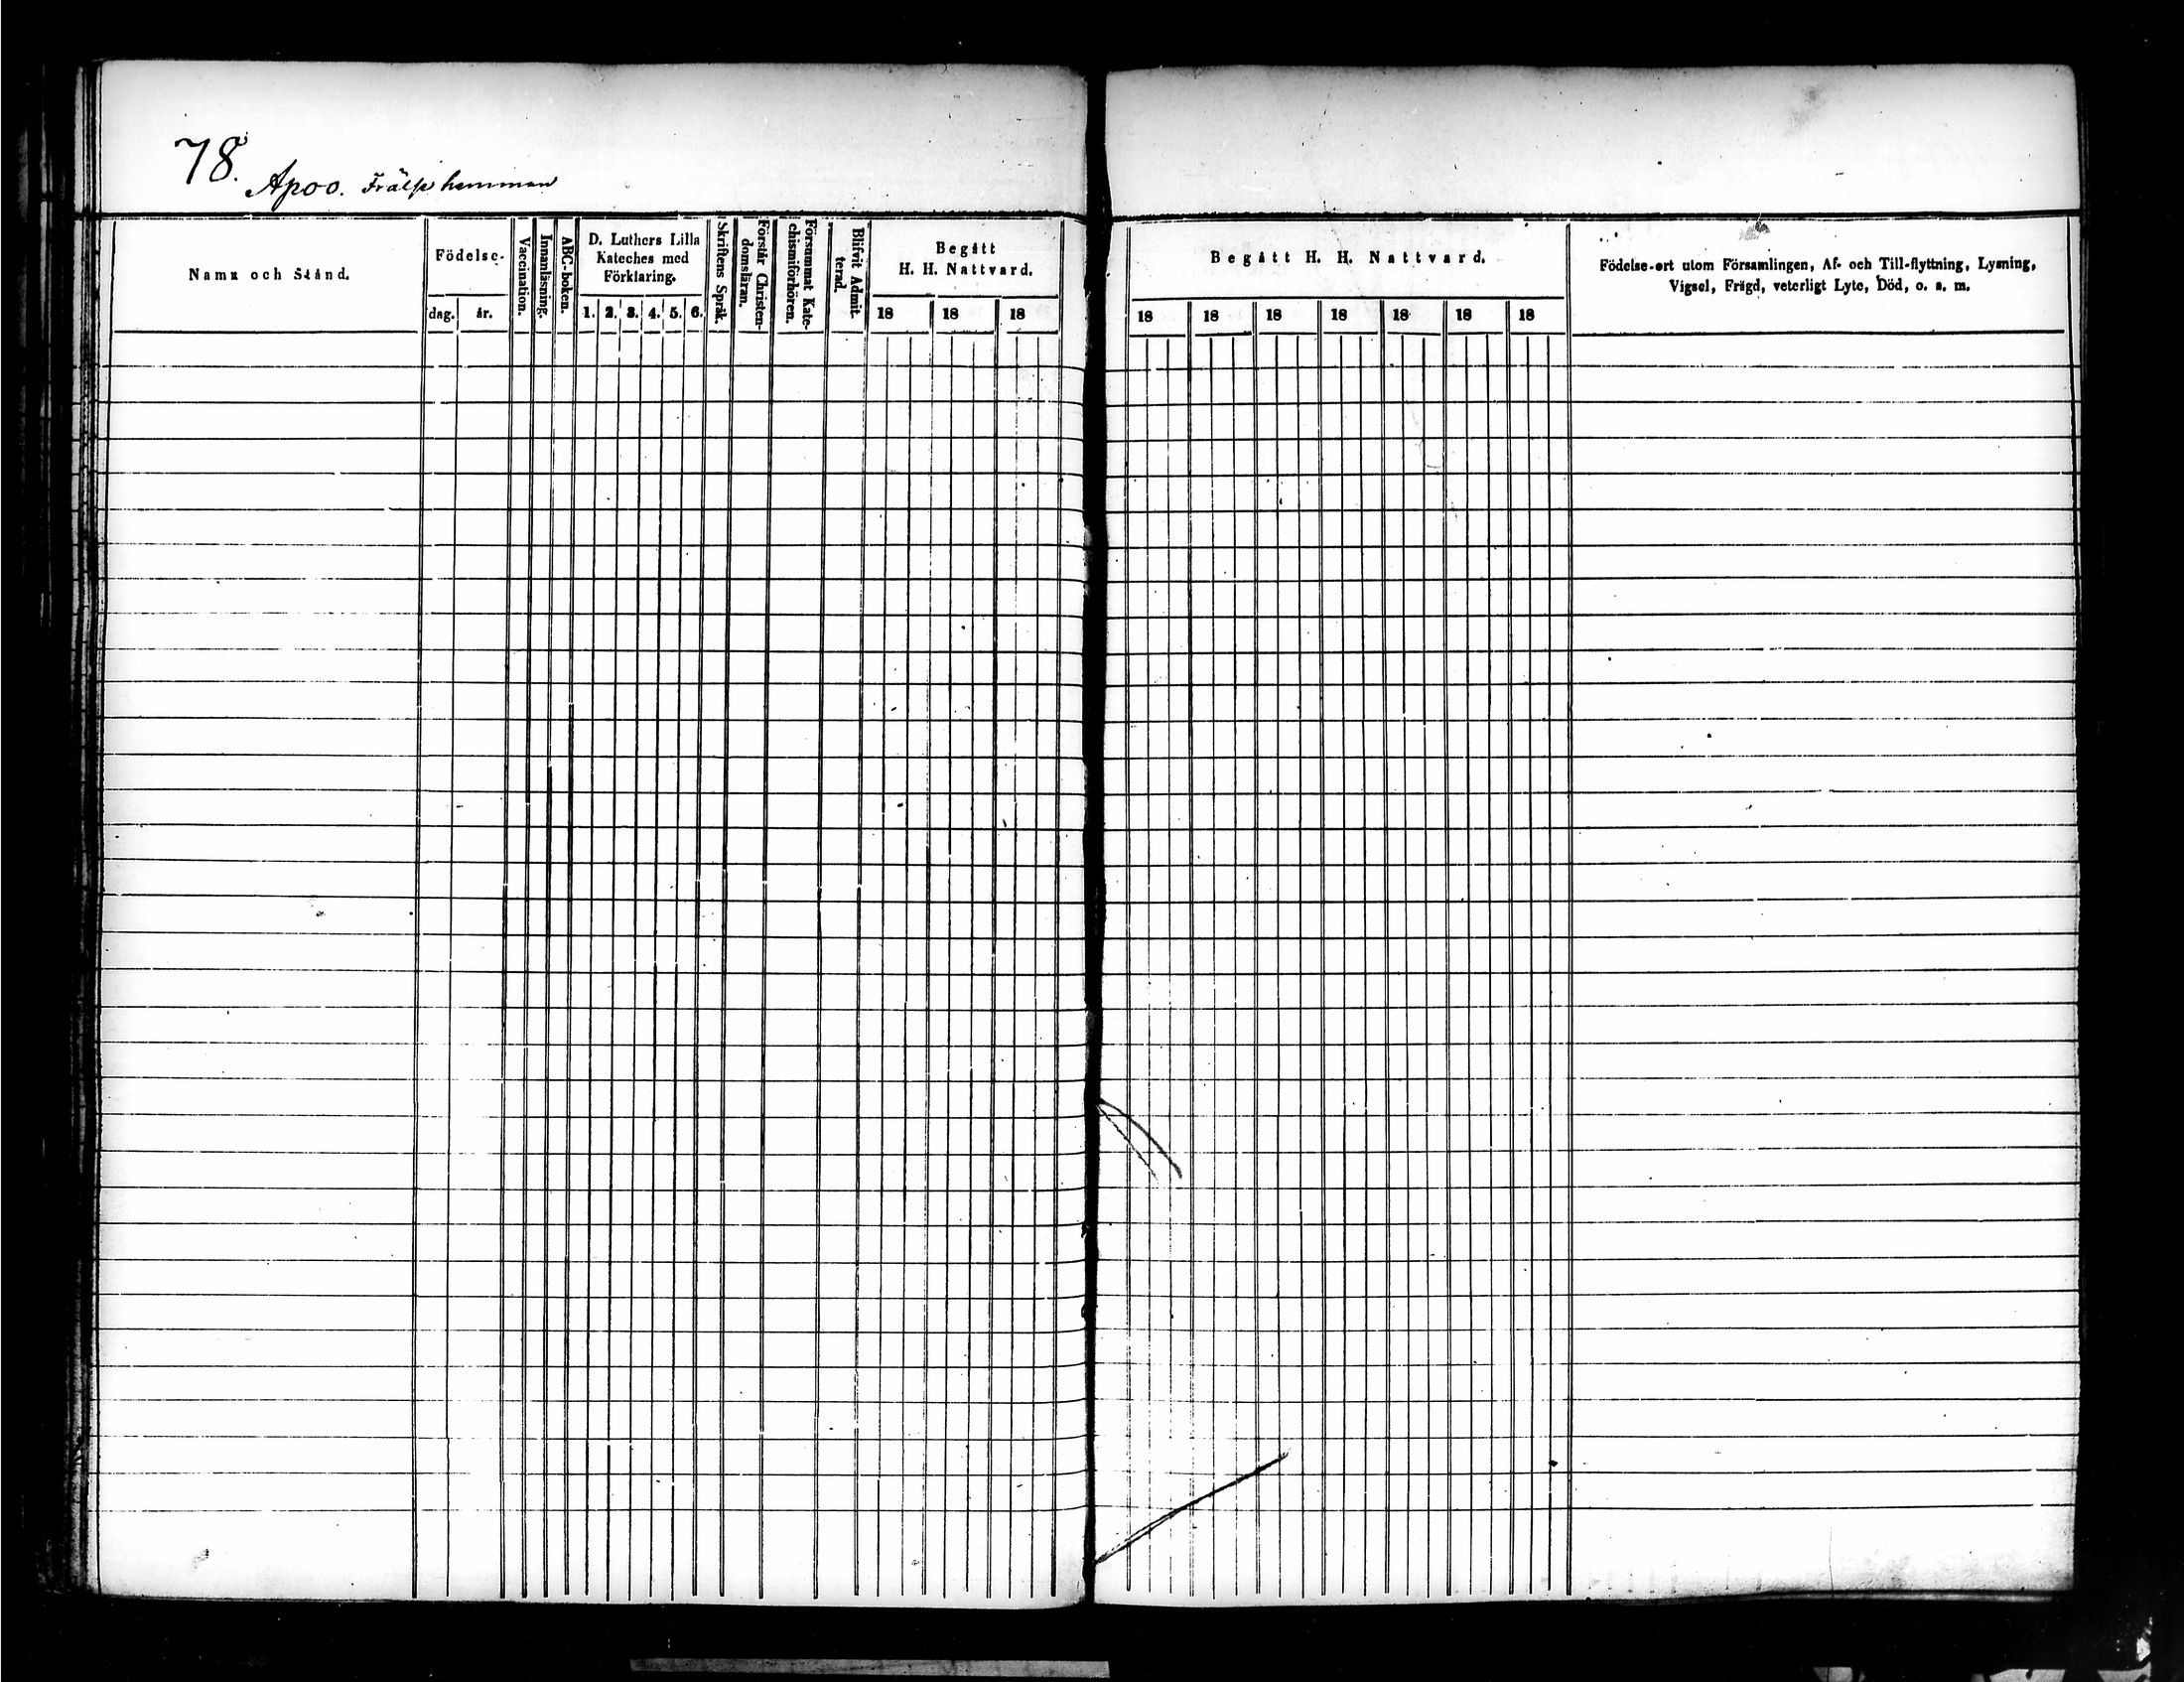 78. Apoo. Frälse hemman
Namn och Stånd.
Födelse-
dag. år.
Vaccination.
Innanläsning.
ABC-boken.
D. Luthers Lilla
Kateches med
Förklaring.
1. 2. 3. 4. 5. 6.
Skriftens Språk.
Förstår Christen-
domsläran.
Försummat Kate-
chismiförhören.
Blifvit Admit-
terad.
Begått
H. H. Nattvard.
18 18 18
Begått H. H. Nattvard.
18 18 18 18 18 18 18
Födelse-ort utom Församlingen, Af- och Till-flyttning, Lysning,
Vigsel, Frägd, veterligt Lyte, Död, o. s. m.